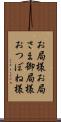 お局様お局
さま御局様
おつぼね様